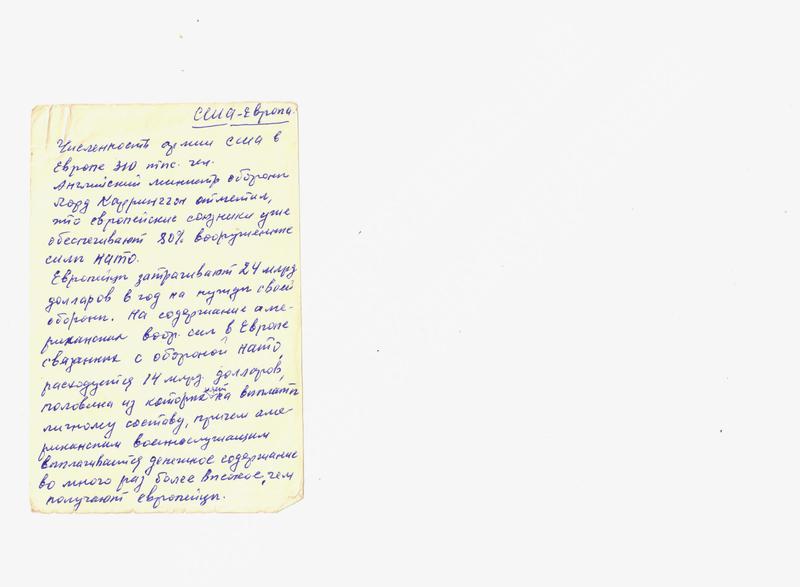 США - Европа.
Численность армии США в
Европе 310 тыс. чел.
Английский министр обороны
Лорд Каррингтон отметил,
что европейские союзники уже
обеспечивают 80% вооруженные
силы НАТО.
Европейцы затрачивают 24 млрд
долларов в год на нужды своей
обороны. На содержание аме-
риканских воор. сил в Европе
связанных с обороной НАТО,
расходуется 14 млрд. долларов,
половина из которых идет на выплаты
личному составу, причем аме-
риканским военнослужащим
выплачивается денежное содержание
во много раз более высокое, чем
получают европейцы.